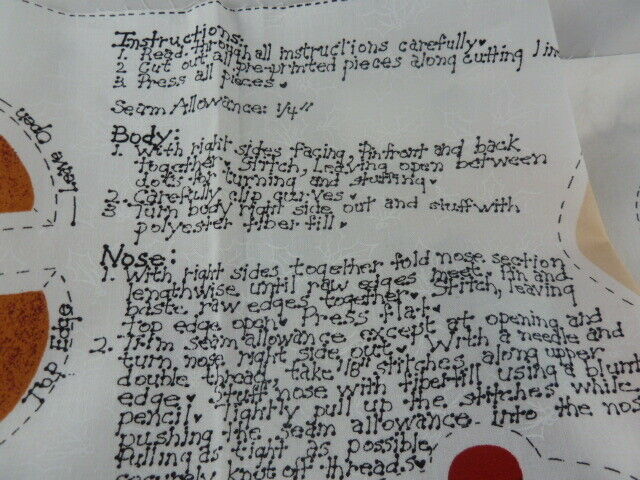 Instructions:
1. Read through all instructions carefully.
2. Cut out all pre-printed pieces along cutting lin
3. Press all pieces.
Seam Allowance: 1/4"
Body:
1. With right sides facing, pin front and back
together. Stitch, leaving open between
dots for turning and stuffing.
2. Carefully clip curves.
3. Turn body right side out and stuff with
polyester fiber fill.
Nose:
1. With right sides together fold nose section
lengthwise until raw edges meet. Pin and
baste raw edges together. Stitch, leaving
top edge open. Press flat.
2. Trim seam allowance except at opening and
turn nose right side out. With a needle and
double thread, take 1/8" stitches along upper
edge. Stuff nose with fiberfill using a blunt
pencil. Lightly pull up the stitches while
pushing the seam allowance into the nos
Pulling as tight as possible,
securely knot off threads.
Leave Open
Top Edge